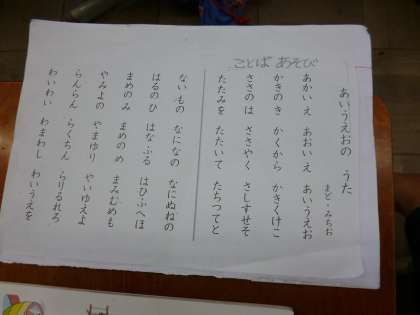 ことばあそび
あいうえおの うた
まど・みちお
あかいえ あおいえ あいうえお
かきのき かくから かきくけこ
ささのは ささやく さしすせそ
たたみを たたいて たちつてと
ないもの なになの なにぬねの
はるのひ はなふる はひふへほ
まめのみ まめのめ まみむめも
やみよの やまゆり やいゆえよ
らんらん らくちん らりるれろ
わいわい わまわし わいうえを